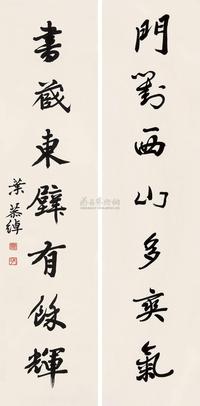 門對西山多爽氣
書藏東壁有餘輝
葉恭綽